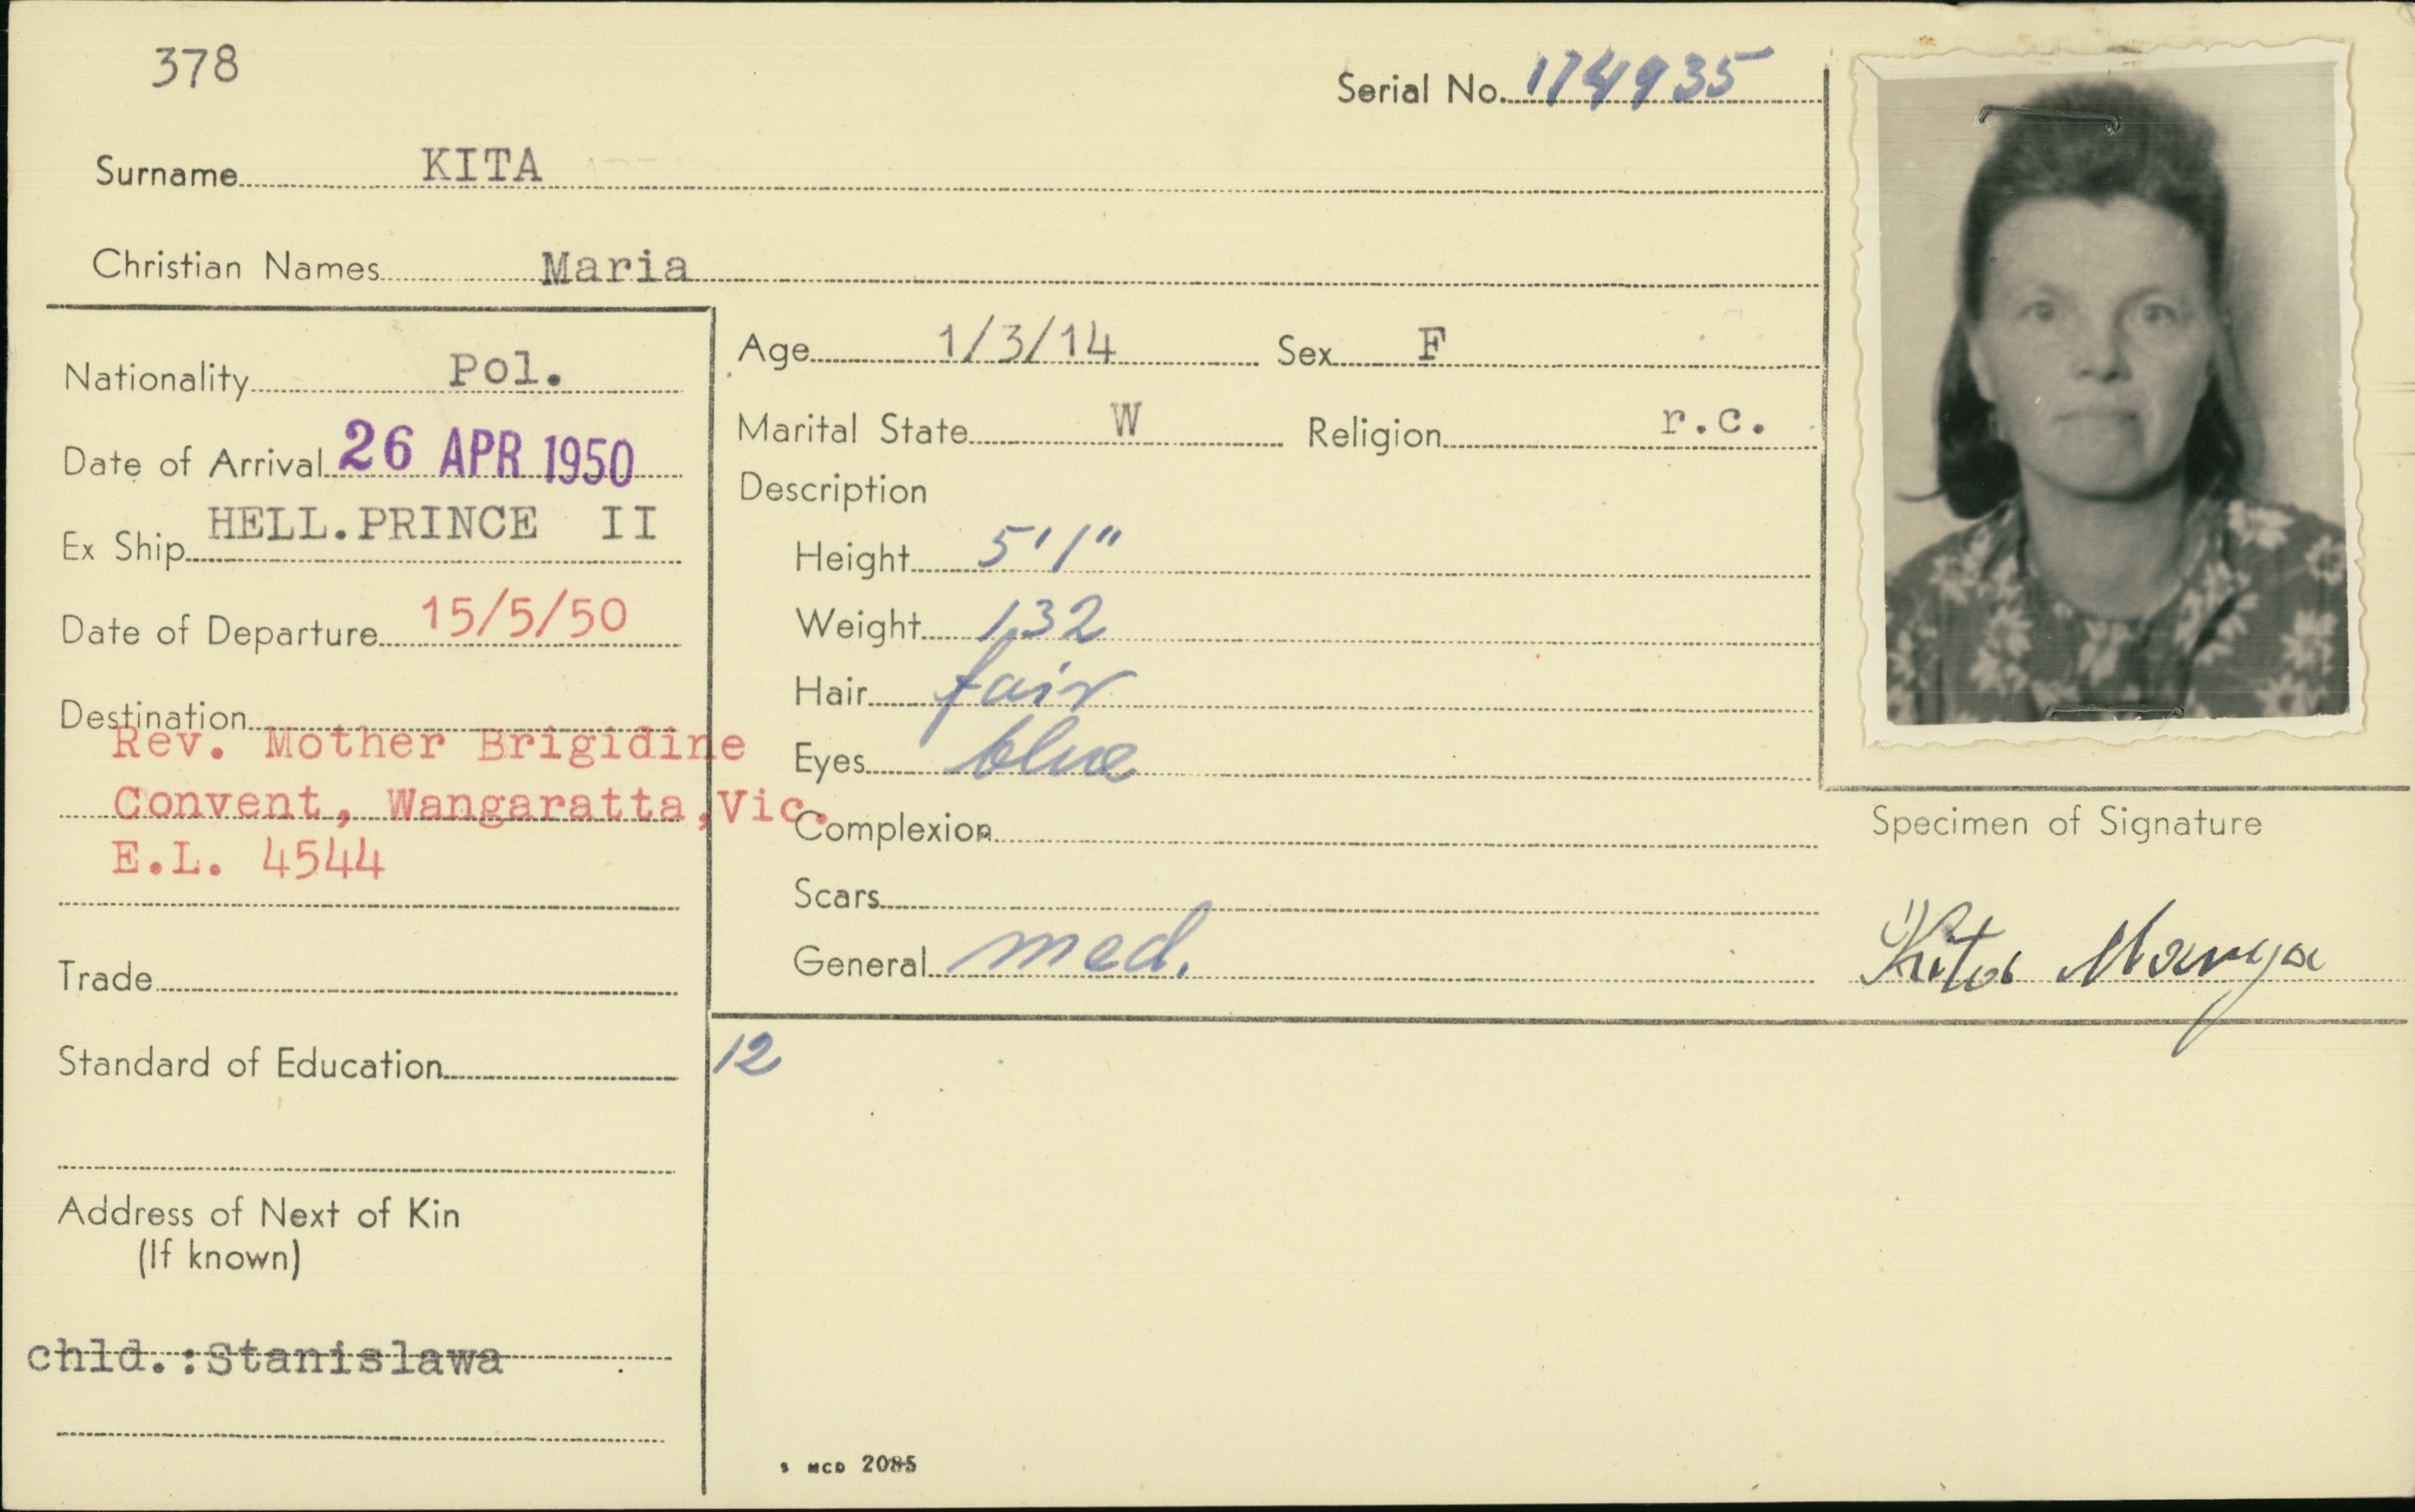 378
Serial No. 174935
Surname KITA
Christian Names Maria
Nationality Pol.
Date of Arrival 26 APR 1950
Ex Ship HELL.PRINCE II
Date of Departure 15/5/50
Destination
Rev. Mother Brigidine
Convent, Wangaratta,Vic.
E.L. 4544
Trade
Standard of Education
Address of Next of Kin
(If known)
chld.:Stanislawa
Age 1/3/14 Sex F
Marital State W Religion r.c.
Description
Height 5'1"
Weight 132
Hair fair
Eyes blue
Complexion
Scars
General med.
12
Specimen of Signature
Kita Marya
S MCD 2085